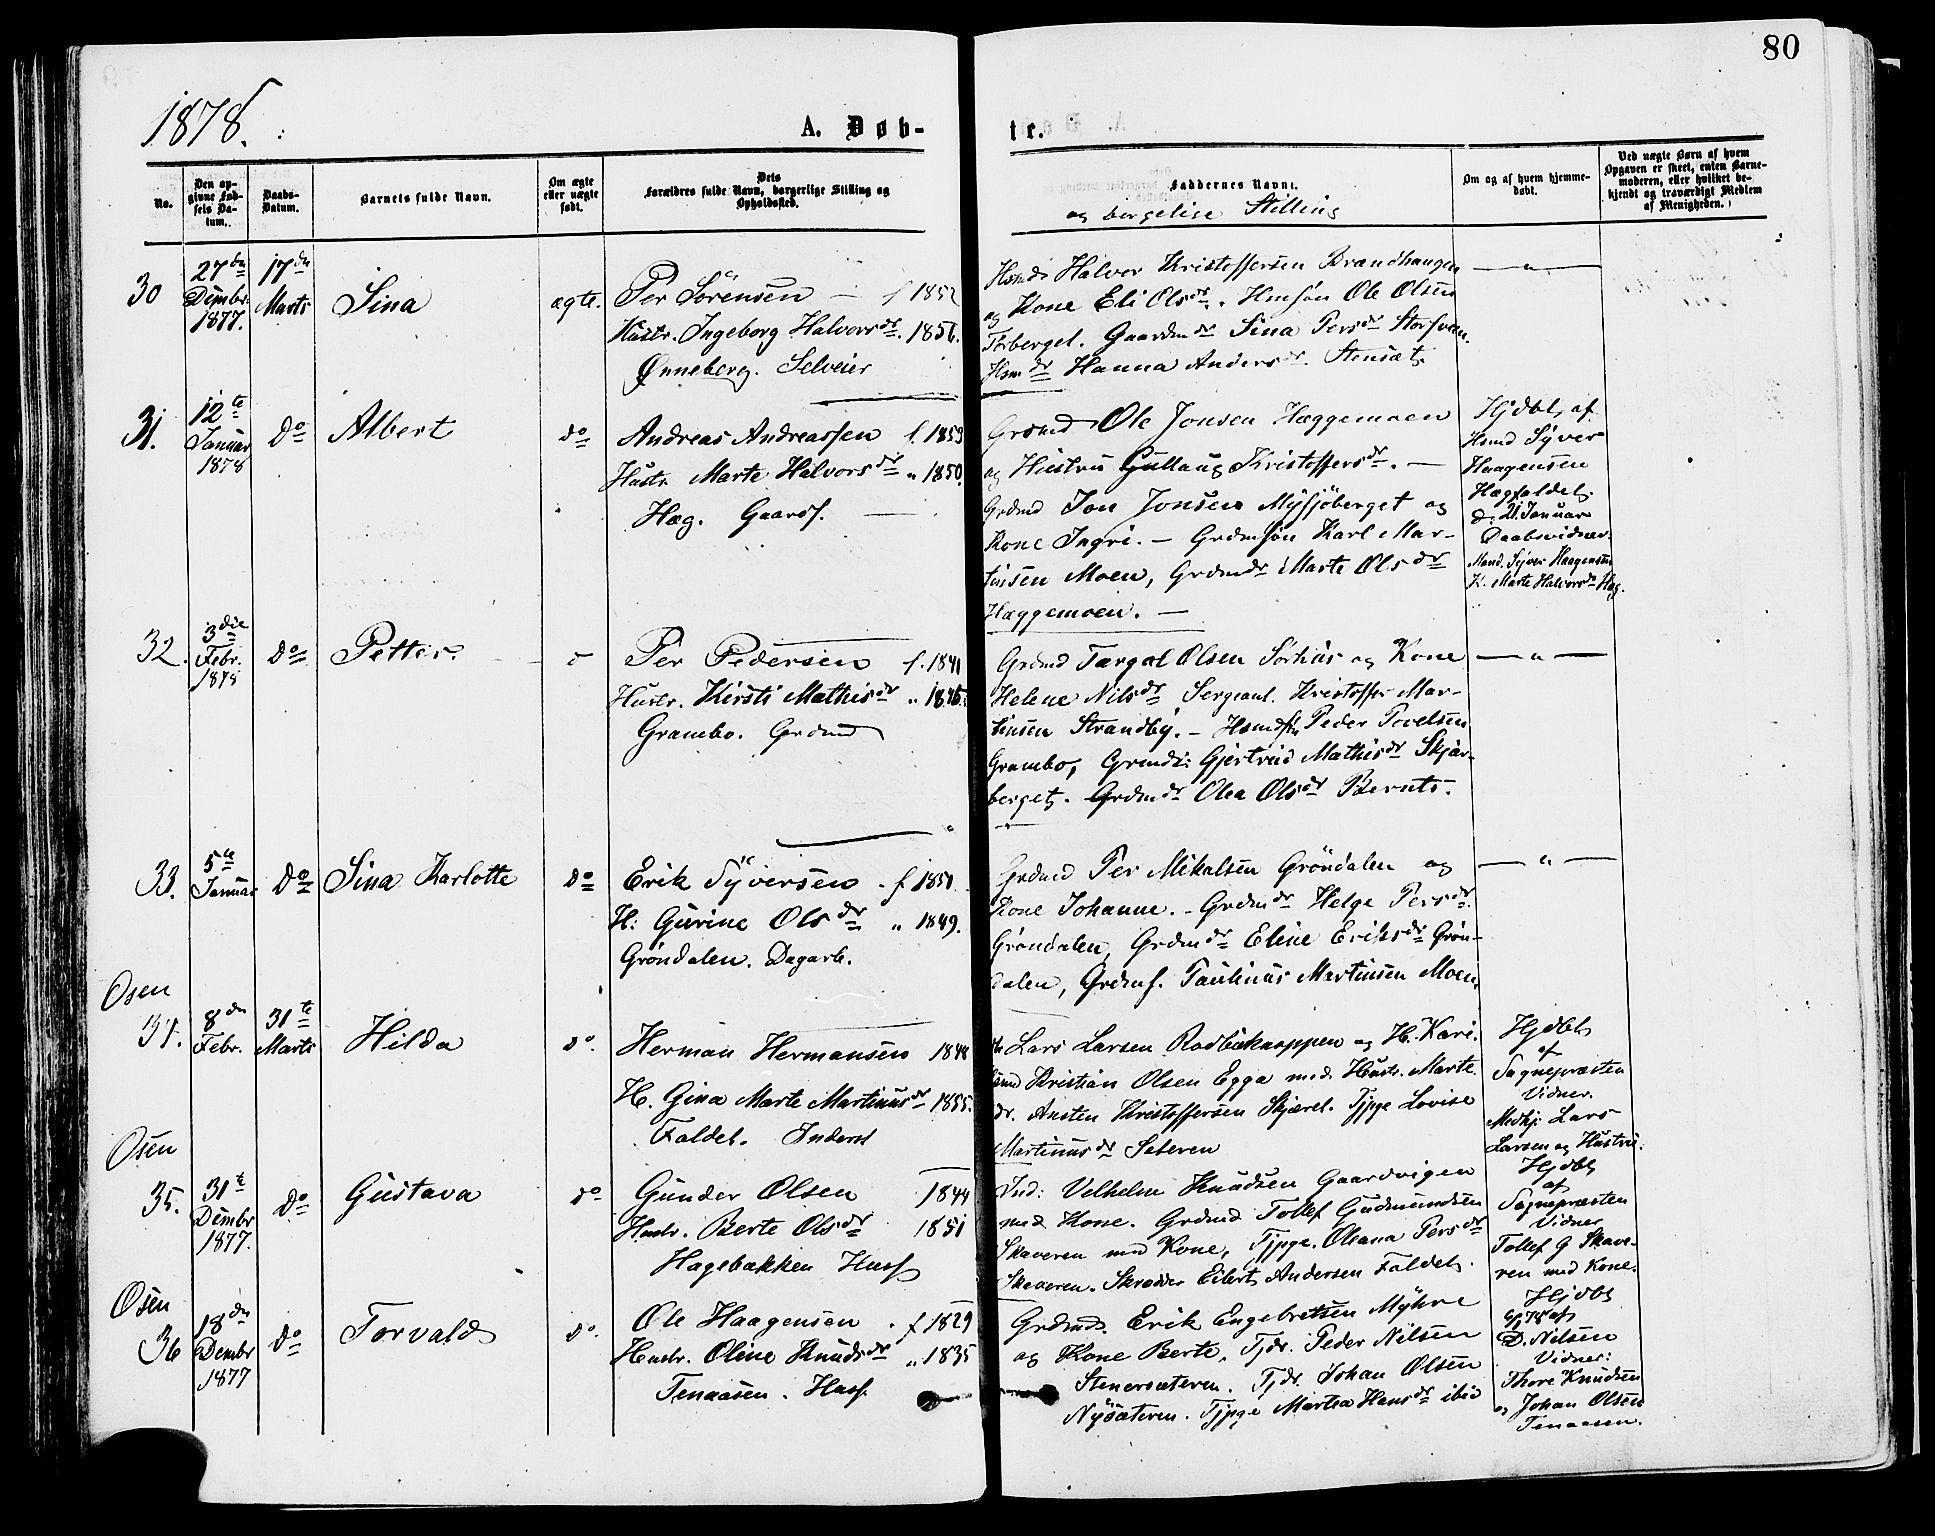 80
1878.
A. Døb-
te.
No.
Den op-
givne Fød-
sels Da-
tum.
Daabs-
Datum.
Barnets fulde Navn.
Om ægte
eller uægte
født.
Dets
Forældres fulde Navn, borgerlige Stilling og
Opholdssted.
Faddernes Navne.
og borgelige Stilling
Om og af hvem hjemme-
døbt.
Ved uægte Børn af hvem
Opgaven er skeet, enten Barne-
moderen, eller hvilket be-
kjendt og troværdigt Medlem
af Menigheden.
30
27de
Dembr.
1877.
17de
Marts
Sina
ægte.
Per Sörensen f 1852
Hustr. Ingeborg Halvorsdr. 1856.
Ønneberg. Selveier
Hsmd Halvor Kristoffersen Brændhaugen
og Kone Eli Olsdr. Hmsøn Ole Olsen
Torberget. Gaardmdr Sina Persdr Storsveen.
Hsmdr Hanna Andersdr Stensæt.
31.
12te
Januar
1878
do
Albert
do
Andreas Andreassen f. 1859
Hustr Marte Halvorsdr " 1850.
Hæg. Gaardf.
Grdmd Ole Jonsen Hæggemoen
og Hustru Gullaug Kristoffersdr.
Grdmd Jon Jonsen Mysjöberget og
Kone Ingri. Grdmsøn Karl Mar-
tinsen Moen, Grdmdr Marte Olsdr
Hæggemoen.
Hjdbt. af
Hsmd Syver
Haagensen
Hægfaldet.
d. 21. Januar
Daabsvidner.
Mand. Syver Haagensen
K. Marte Halvorsdr Hæg.
32.
3die
Febr.
1878
do
Petter.
d
Per Pedersen f. 1841
Hustr. Kirsti Mathisdr " 1845.
Grambo. Grdmd
Grdmd Targal Olsen Sörhus og Kone
Helene Nilsdr Sergeant. Kristoffer Mar-
tinsen Strandby. Hsmdsn Peder Povelsen
Grambo, Grmdr: Gjertrud Mathisdr Skjær-
berget. Grdmdr Olea Olsdr Bernts.
33.
5te
Januar
do
Sina Karlotte
do
Erik Syversen. f 1850.
H: Gurine Olsdr " 1849.
Gröndalen. Dagarb.
Grdmd Per Mikalsen Gröndalen og
Kone Johanne. Grdmdr Helge Persdr.
Gröndalen, Grdmdr Eline Eriksdr Grön-
dalen, Grdmf. Paulinus Martinsen Moen.
Osen
34.
8de
Febr.
31te
Marts
Hilda
do.
Herman Hermansen 1848
H. Gina Marte Martinusdr 1855.
Faldet. Inderst
Lars Larsen Rødbækneppen og H. Kari.
Kristian Olsen Egga med Hustr. Marte
Ansten Kristoffersen Skjæret. Tjpge Lovise
Martinusdr Seteren
Hjdbt
af
Sognepræsten
Vidner.
Medhj. Lars
Larsen og Hustru.
Osen
35.
31te
Dembr
1877.
do
Gustava
do
Gunder Olsen 1844
Hustr. Berte Olsdr 1851
Hagebakken Husf
Ind: Velhelm Knudsen Gaardvigen
med Kone. Grdmd Tollef Gudmundsen
Skaveren med Kone, Tjpge. Oleana Persdr
Skaveren. Skrædder Eilert Andersen Faldet.
Hjdbt
af
Sognepræsten
Vidner
Tollef G Skave-
ren med Kone.
Osen
36
18de
Dembr
1877
do
Torvald
do.
Ole Haagensen. f 1829
Hustr. Oline Knudsdr " 1835
Tenaasen. Husf.
Grdmd. Erik Engebretsen Myhre
og Kone Berte, Tjdr. Peder Nilsen
Stenersæteren. Tjdr. Johan Olsen
Nysæteren. Tjpge Martea Hansdr ibid
Hjdbt
D. Nilsen
Vidner:
Thore Knudsen
og Johan Olsen
Tenaasen.